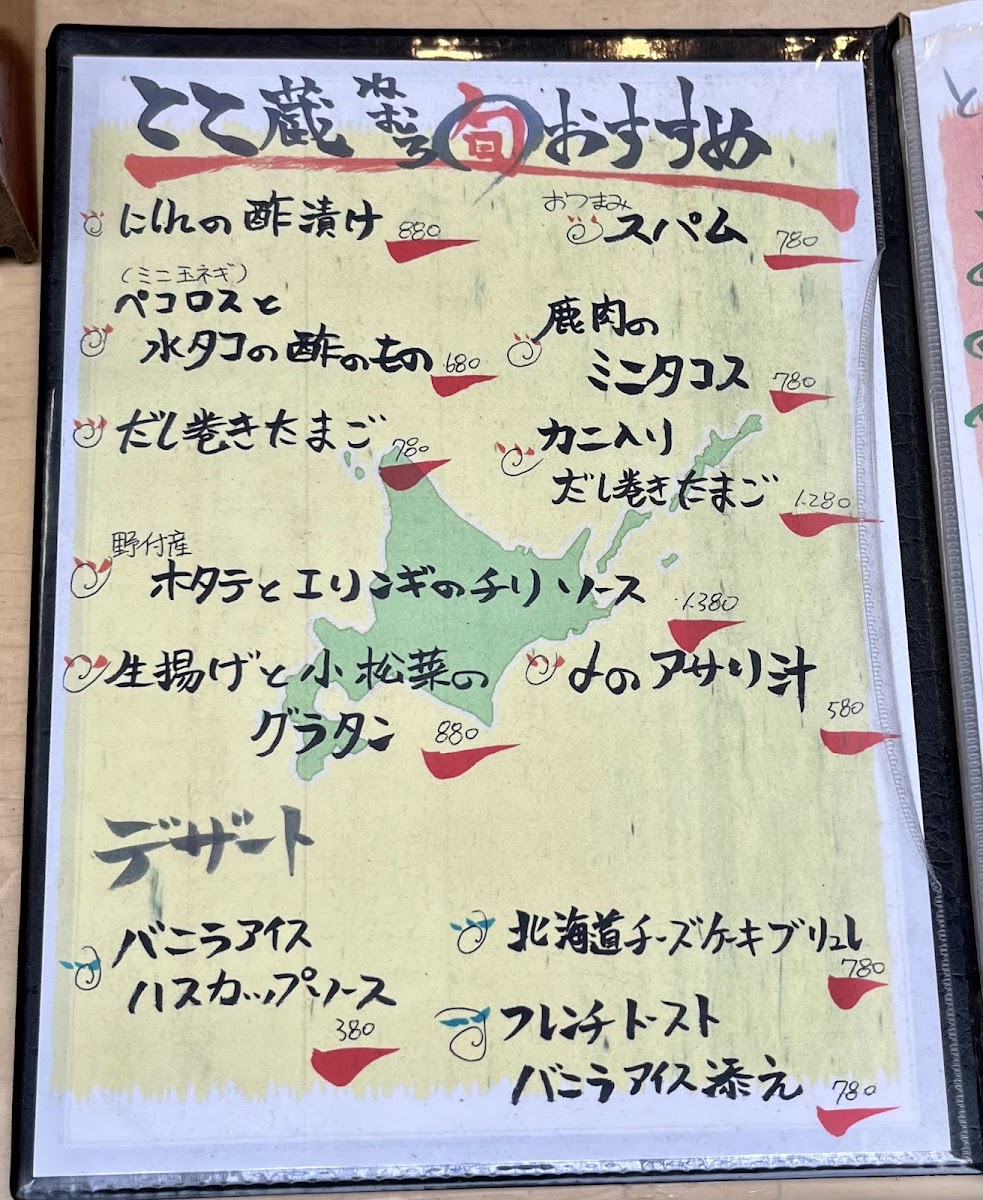 とと蔵 ねむろ 旬 おすすめ
にしんの酢漬け 880
(ミニ玉ネギ)
ペコロスと
水タコの酢のもの 680
だし巻きたまご 780
おつまみ
スパム 780
鹿肉の
ミニタコス 780
カニ入り
だし巻きたまご 1.280
野付産
ホタテとエリンギのチリソース 1.380
生揚げと小松菜の
グラタン 880
〆のアサリ汁 580
デザート
バニラアイス
ハスカップソース 380
北海道チーズケーキブリュレ
780
フレンチトースト
バニラアイス添え 780
と